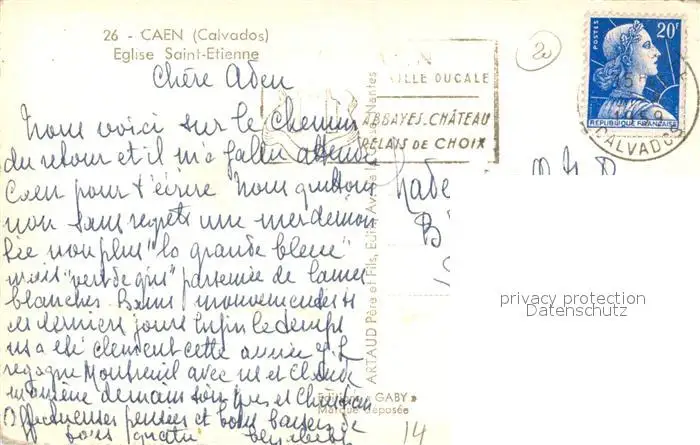 26 - CAEN (Calvados)
Eglise Saint-Etienne
Chère Aden
Nous voici sur le chemin
du retour et il m'a fallu attendre
Caen pour t'écrire Nous quittons
non sans regrets une mer démon
tée non plus "la grande bleue"
mais "vert de gris" parsemée de lames
blanches. Bains mouvementés
ces derniers jours Enfin le temps
ns a été clément cette année
regagne Montreuil avec ns et Claude
emmène demain son et Christian
Affectueuses pensées et bons baisers de
nous quatre
VILLE DUCALE
ABBAYES. CHÂTEAU
RELAIS DE CHOIX
POSTES
20F
REPUBLIQUE FRANÇAISE
1959
CALVADOS
20
ARTAUD Père et Fils, Edit., Nantes
Editions "GABY"
Marque déposée
14
privacy protection
Datenschutz